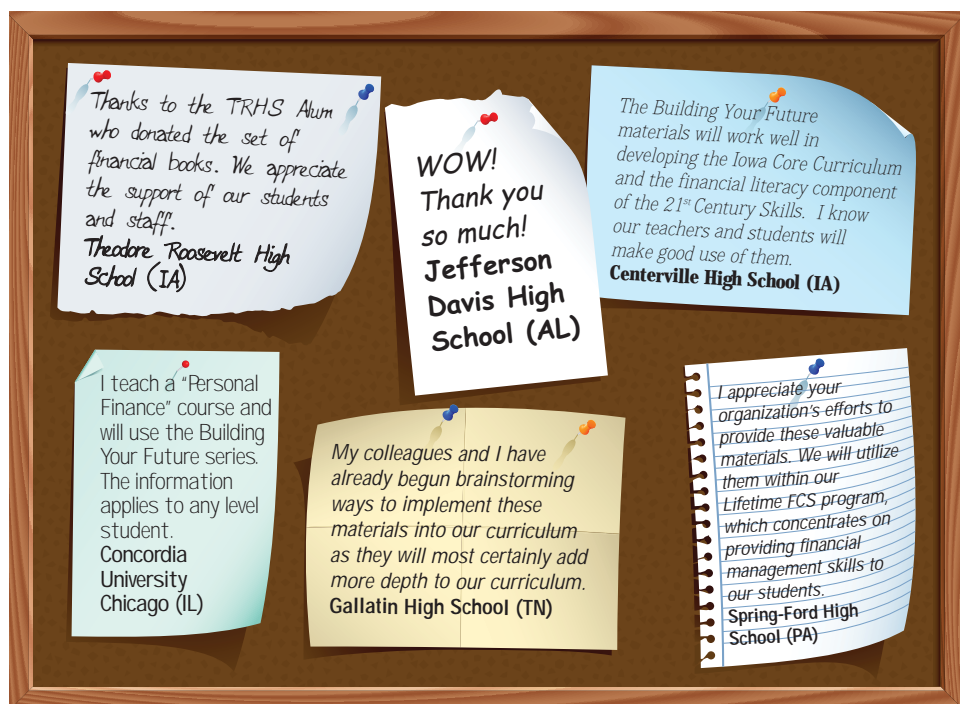 Thanks to the TRHS Alum
who donated the set of
financial books. We appreciate
the support of our students
and staff.
Theodore Roosevelt High
School (IA)
WOW!
Thank you
so much!
Jefferson
Davis High
School (AL)
The Building Your Future
materials will work well in
developing the Iowa Core Curriculum
and the financial literacy component
of the 21st Century Skills. I know
our teachers and students will
make good use of them.
Centerville High School (IA)
I teach a “Personal
Finance” course and
will use the Building
Your Future series.
The information
applies to any level
student.
Concordia
University
Chicago (IL)
My colleagues and I have
already begun brainstorming
ways to implement these
materials into our curriculum
as they will most certainly add
more depth to our curriculum.
Gallatin High School (TN)
I appreciate your
organization's efforts to
provide these valuable
materials. We will utilize
them within our
Lifetime FCS program,
which concentrates on
providing financial
management skills to
our students.
Spring-Ford High
School (PA)